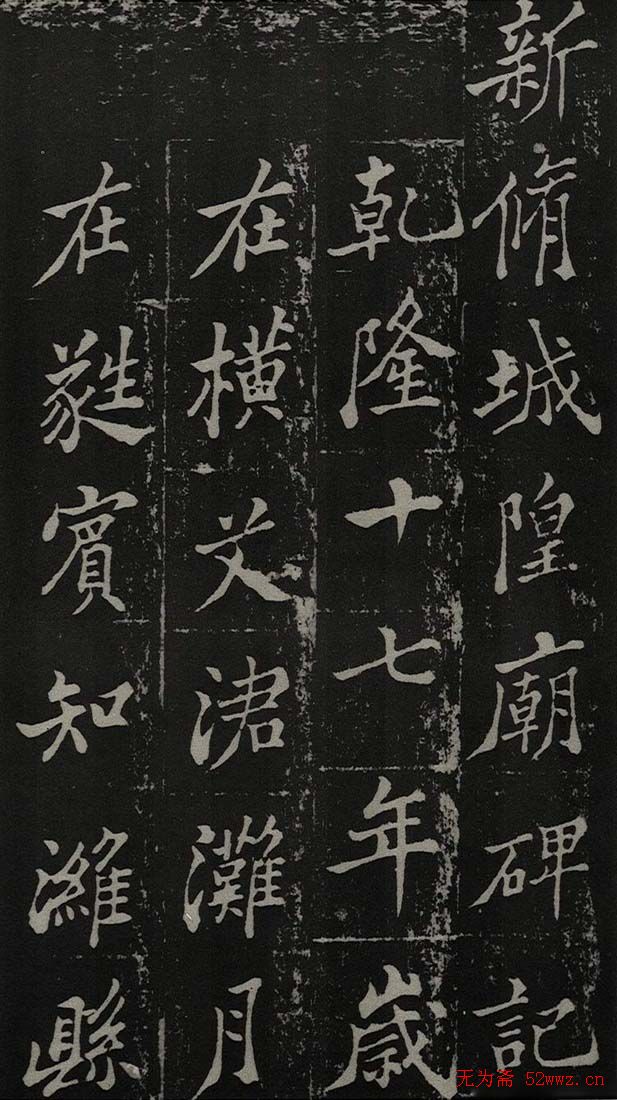 新脩城隍廟碑記
乾隆十七年歲
在橫艾涒灘月
在蕤賓知濰縣
无为斋 52wwz.cn